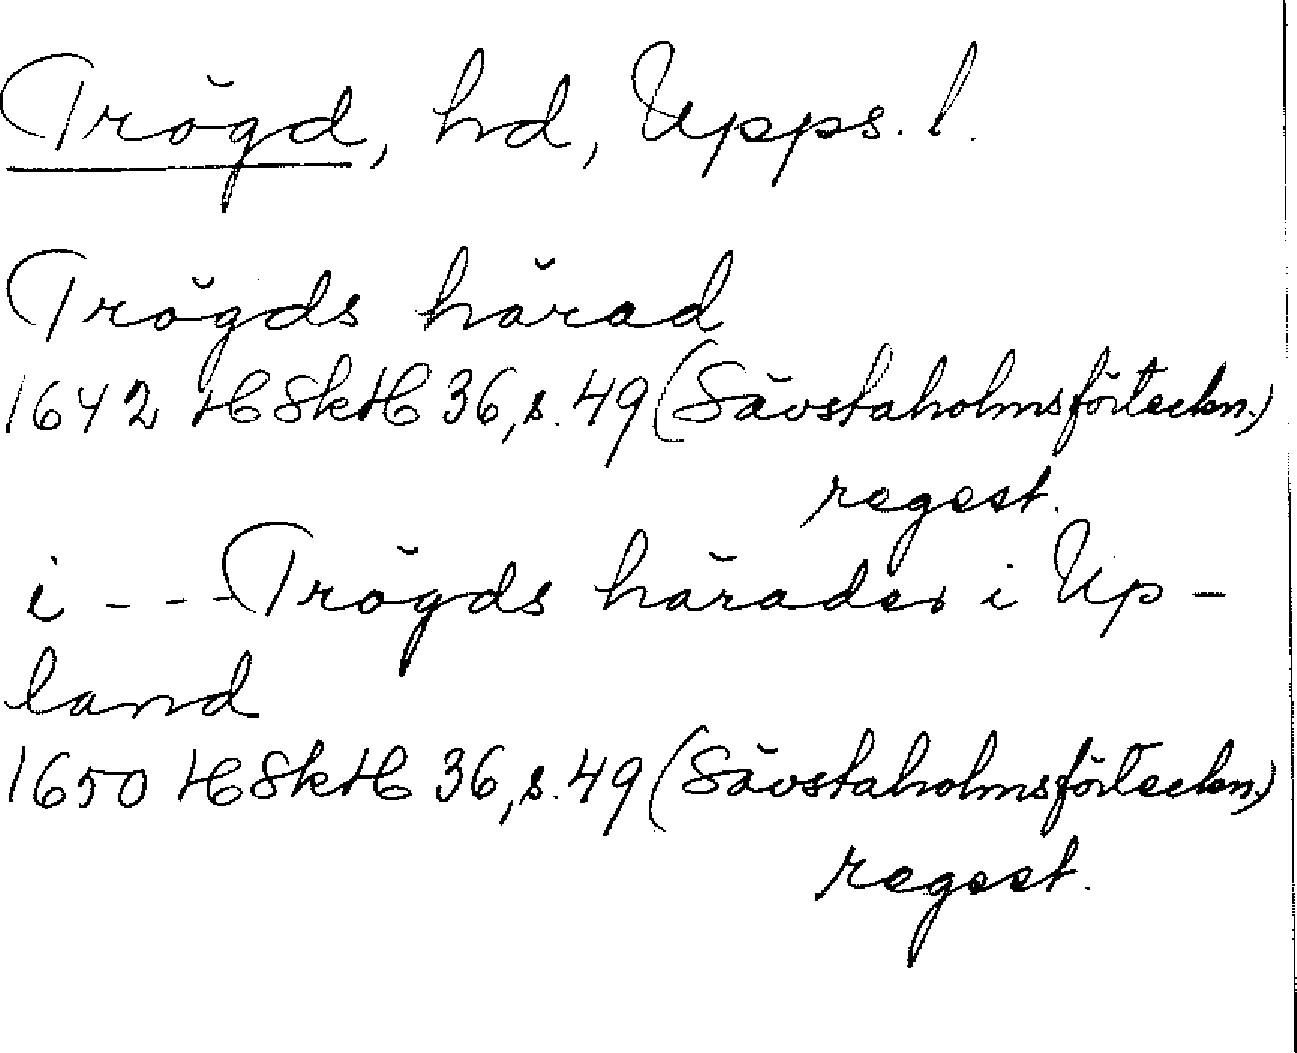 Trögd, hd, Upps. l.
Trögds härad
1642 HSkH 36, s. 49 (Sävstaholmsförteckn.)
regest.
i - - - Trögds härader i Up-
land
1650 HSkH 36, s. 49 (Sävstaholmsförteckn.)
regest.